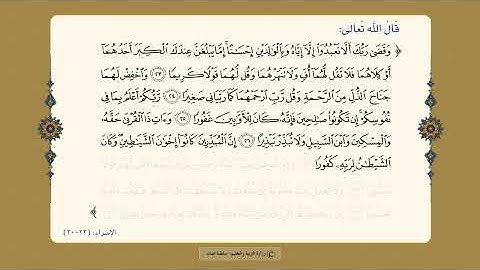 قال الله تعالى:
﴿ وَقَضَىٰ رَبُّكَ أَلَّا تَعْبُدُوٓا۟ إِلَّآ إِيَّاهُ وَبِٱلْوَٰلِدَيْنِ إِحْسَٰنًا إِمَّا يَبْلُغَنَّ عِندَكَ ٱلْكِبَرَ أَحَدُهُمَآ
أَوْ كِلَاهُمَا فَلَا تَقُل لَّهُمَآ أُفٍّ وَلَا تَنْهَرْهُمَا وَقُل لَّهُمَا قَوْلًا كَرِيمًا ٢٣ وَٱخْفِضْ لَهُمَا
جَنَاحَ ٱلذُّلِّ مِنَ ٱلرَّحْمَةِ وَقُل رَّبِّ ٱرْحَمْهُمَا كَمَا رَبَّيَانِى صَغِيرًا ٢٤ رَّبُّكُمْ أَعْلَمُ بِمَا فِى
نُفُوسِكُمْ إِن تَكُونُوا۟ صَٰلِحِينَ فَإِنَّهُۥ كَانَ لِلْأَوَّٰبِينَ غَفُورًا ٢٥ وَءَاتِ ذَا ٱلْقُرْبَىٰ حَقَّهُۥ
وَٱلْمِسْكِينَ وَٱبْنَ ٱلسَّبِيلِ وَلَا تُبَذِّرْ تَبْذِيرًا ٢٦ إِنَّ ٱلْمُبَذِّرِينَ كَانُوٓا۟ إِخْوَٰنَ ٱلشَّيَٰطِينِ وَكَانَ
ٱلشَّيْطَٰنُ لِرَبِّهِۦ كَفُورًا
﴾